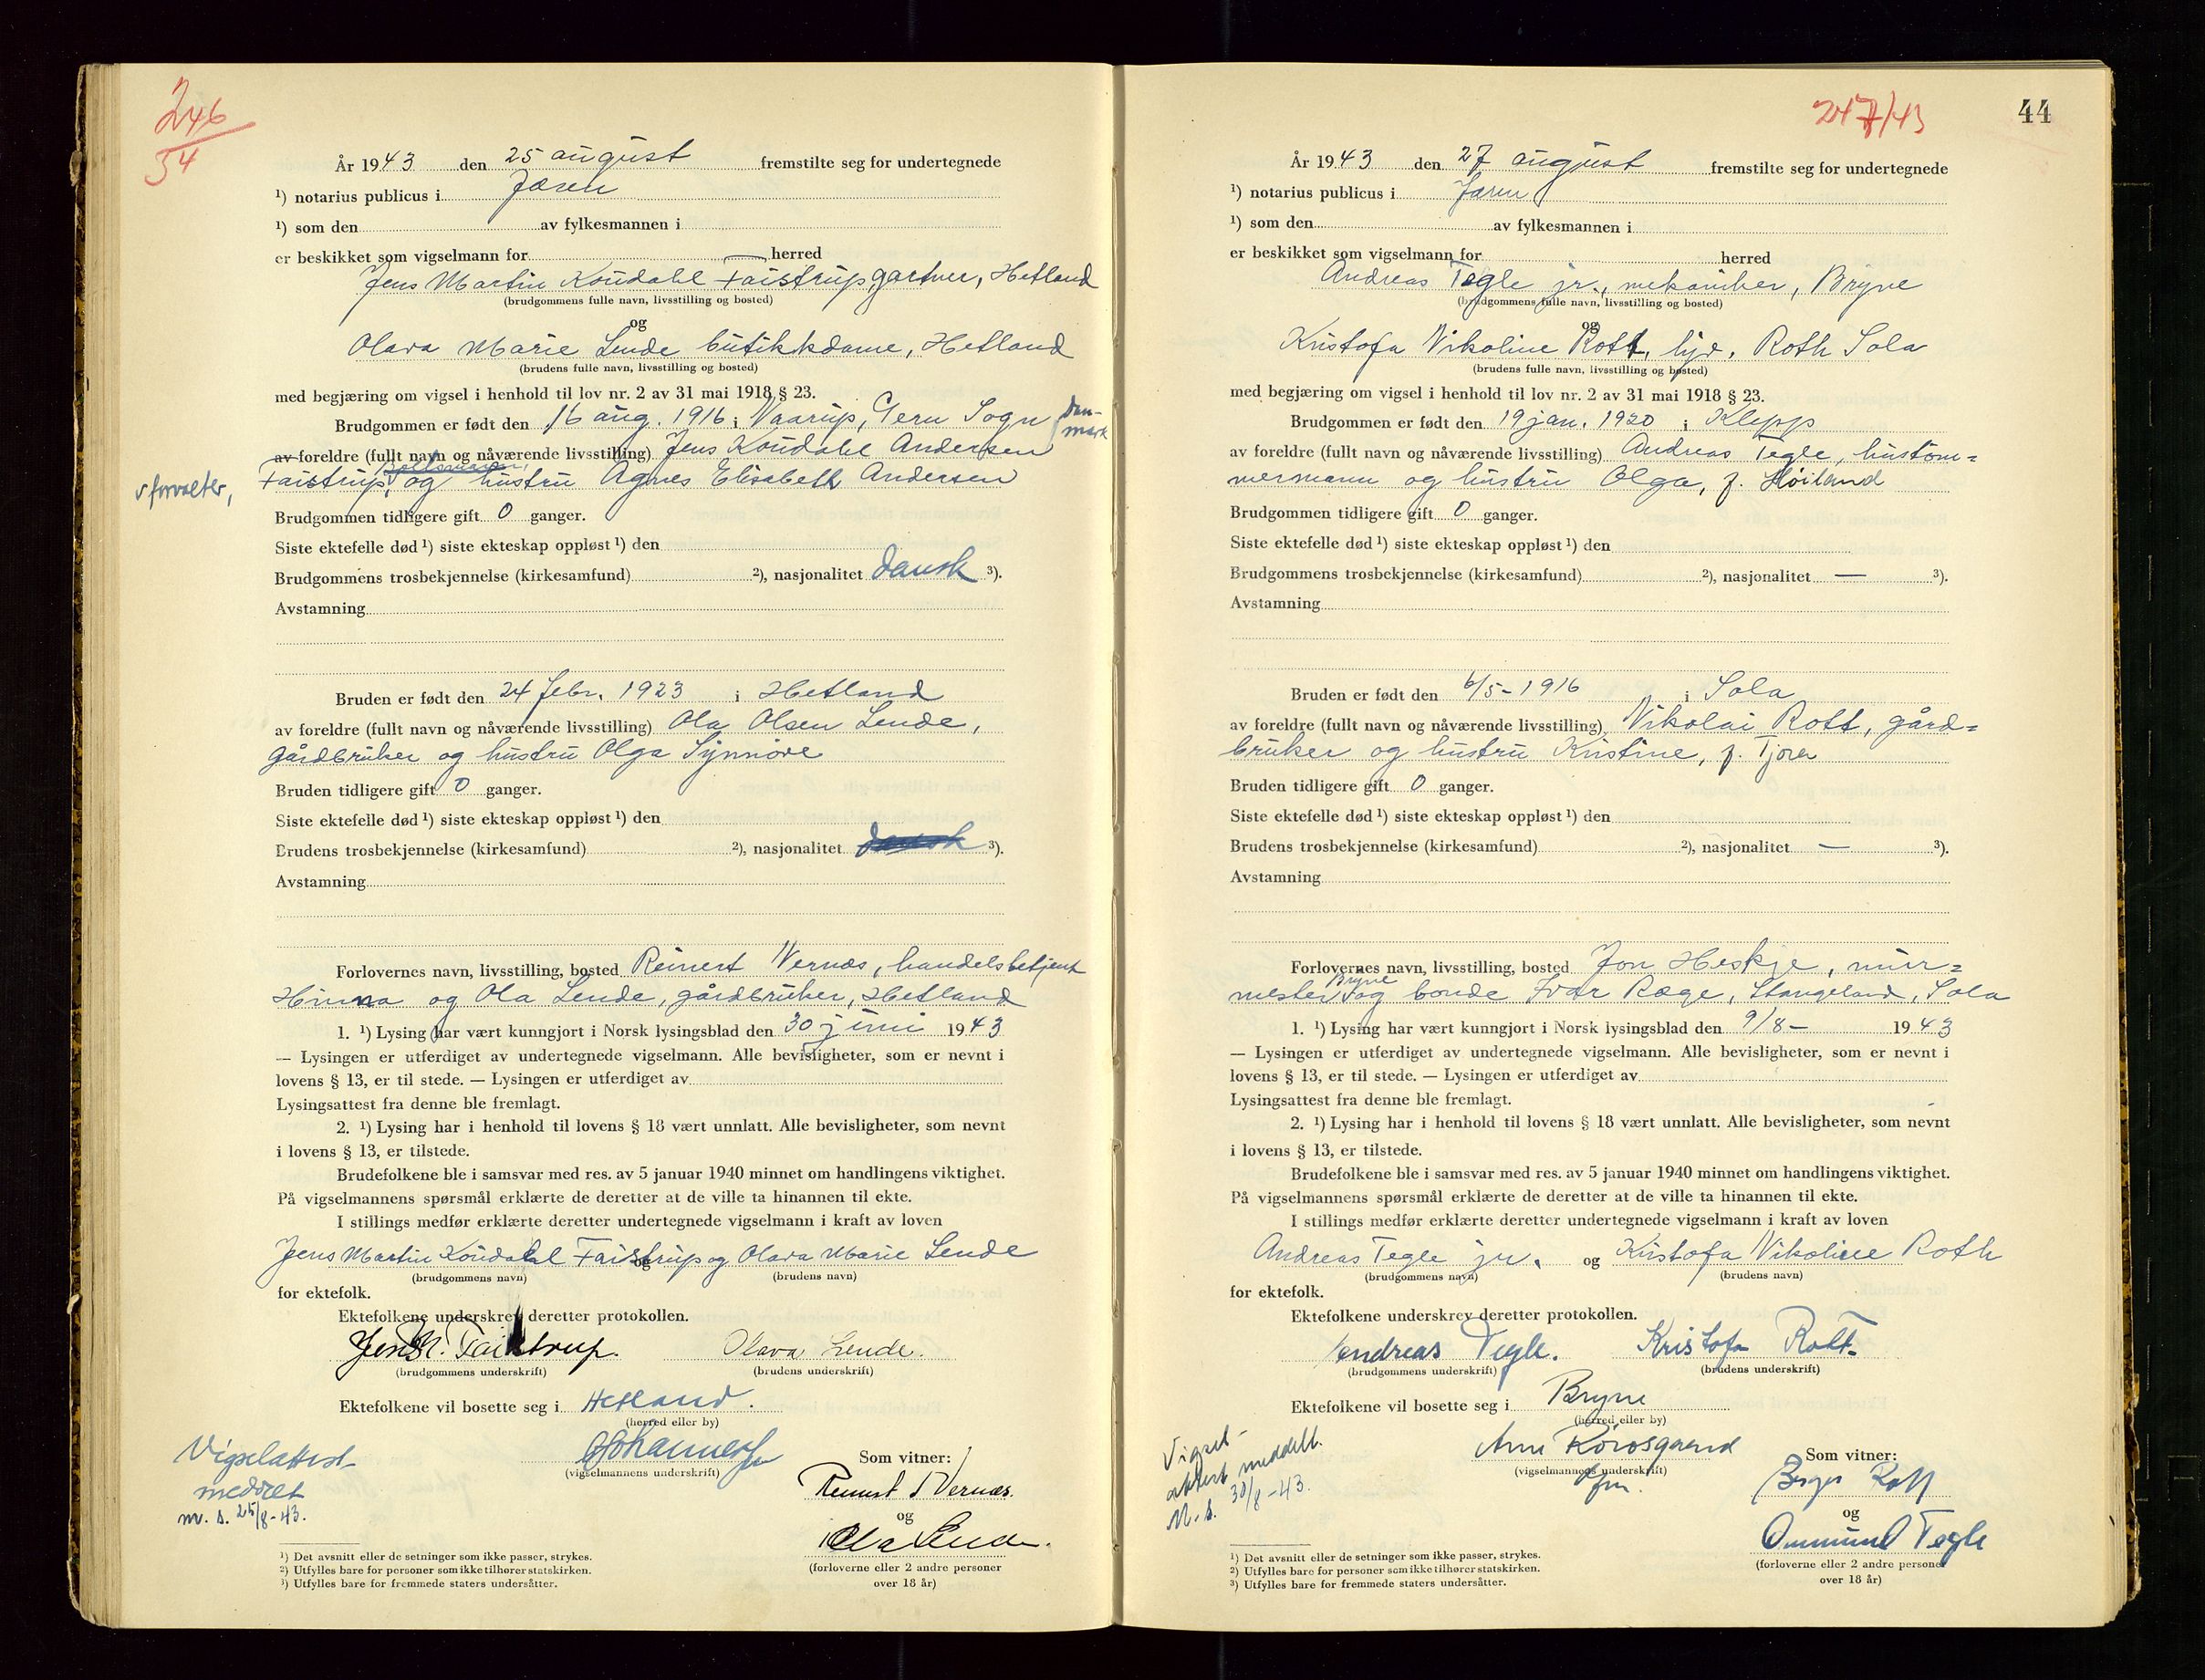 246
54
År 1943 den 25 august fremstilte seg for undertegnede
¹) notarius publicus i Jæren
¹) som den av fylkesmannen i
er beskikket som vigselmann for herred
Jens Martin Koudahl Faistrup, gartner, Hetland
(brudgommens fulle navn, livsstilling og bosted)
og
Olava Marie Lende butikkdame, Hetland
(brudens fulle navn, livsstilling og bosted)
med begjæring om vigsel i henhold til lov nr. 2 av 31 mai 1918 § 23.
Brudgommen er født den 16 aug. 1916 i Vaarup, Gern Sogn Dan-
mark
av foreldre (fullt navn og nåværende livsstilling) Jens Koudahl Andersen
Faistrup, og hustru Agnes Elisabeth Andersen
v forvalter,
Brudgommen tidligere gift 0 ganger.
Siste ektefelle død ¹) siste ekteskap oppløst ¹) den
Brudgommens trosbekjennelse (kirkesamfund) ²), nasjonalitet dansk ³).
Avstamning
Bruden er født den 24 febr. 1923 i Hetland
av foreldre (fullt navn og nåværende livsstilling) Ola Olsen Lende,
gårdbruker og hustru Olga Synnöve
Bruden tidligere gift 0 ganger.
Siste ektefelle død ¹) siste ekteskap oppløst ¹) den
Brudens trosbekjennelse (kirkesamfund) ²), nasjonalitet dansk ³).
Avstamning
Forlovernes navn, livsstilling, bosted Reinert Vernæs, handelsbetjent
Hinna og Ola Lende, gårdbruker, Hetland
1. ¹) Lysing har vært kunngjort i Norsk lysingsblad den 30 juni 1943
— Lysingen er utferdiget av undertegnede vigselmann. Alle bevisligheter, som er nevnt i
lovens § 13, er til stede. — Lysingen er utferdiget av
Lysingsattest fra denne ble fremlagt.
2. ¹) Lysing har i henhold til lovens § 18 vært unnlatt. Alle bevisligheter, som nevnt
i lovens § 13, er tilstede.
Brudefolkene ble i samsvar med res. av 5 januar 1940 minnet om handlingens viktighet.
På vigselmannens spørsmål erklærte de deretter at de ville ta hinannen til ekte.
I stillings medfør erklærte deretter undertegnede vigselmann i kraft av loven
Jens Martin Koudahl Faistrup og Olava Marie Lende
(brudgommens navn) og (brudens navn)
for ektefolk.
Ektefolkene underskrev deretter protokollen.
Jens K. Faistrup. Olava Lende.
(brudgommens underskrift) (brudens underskrift)
Ektefolkene vil bosette seg i Hetland.
(herred eller by)
(vigselmannens underskrift)
Vigselattest
meddelt
m. s. 25/8-43.
Som vitner:
Reinert Vernæs.
og
Ola Lende.
(forloverne eller 2 andre personer
over 18 år)
¹) Det avsnitt eller de setninger som ikke passer, strykes.
²) Utfylles bare for personer som ikke tilhører statskirken.
³) Utfylles bare for fremmede staters undersåtter.
247/43
44
År 1943 den 27 august fremstilte seg for undertegnede
¹) notarius publicus i Jæren
¹) som den av fylkesmannen i
er beskikket som vigselmann for herred
Andreas Tegle jr., mekaniker, Bryne
(brudgommens fulle navn, livsstilling og bosted)
og
Kristofa Nikoline Rott, hjv. Roth Sola
(brudens fulle navn, livsstilling og bosted)
med begjæring om vigsel i henhold til lov nr. 2 av 31 mai 1918 § 23.
Brudgommen er født den 19 jan. 1920 i Klepp
av foreldre (fullt navn og nåværende livsstilling) Andreas Tegle, hustøm=
mermann og hustru Olga, f. Höiland
Brudgommen tidligere gift 0 ganger.
Siste ektefelle død ¹) siste ekteskap oppløst ¹) den
Brudgommens trosbekjennelse (kirkesamfund) ²), nasjonalitet — ³).
Avstamning
Bruden er født den 6/5-1916 i Sola
av foreldre (fullt navn og nåværende livsstilling) Nikolai Rott, gård=
bruker og hustru Kristine, f. Tjora
Bruden tidligere gift 0 ganger.
Siste ektefelle død ¹) siste ekteskap oppløst ¹) den
Brudens trosbekjennelse (kirkesamfund) ²), nasjonalitet — ³).
Avstamning
Forlovernes navn, livsstilling, bosted Jon Heskje, mur=
mester Bryne og bonde Ivar Ræge, Stangeland, Sola
1. ¹) Lysing har vært kunngjort i Norsk lysingsblad den 9/8- 1943
— Lysingen er utferdiget av undertegnede vigselmann. Alle bevisligheter, som er nevnt i
lovens § 13, er til stede. — Lysingen er utferdiget av
Lysingsattest fra denne ble fremlagt.
2. ¹) Lysing har i henhold til lovens § 18 vært unnlatt. Alle bevisligheter, som nevnt
i lovens § 13, er tilstede.
Brudefolkene ble i samsvar med res. av 5 januar 1940 minnet om handlingens viktighet.
På vigselmannens spørsmål erklærte de deretter at de ville ta hinannen til ekte.
I stillings medfør erklærte deretter undertegnede vigselmann i kraft av loven
Andreas Tegle jr. og Kristofa Nikoline Roth
(brudgommens navn) (brudens navn)
for ektefolk.
Ektefolkene underskrev deretter protokollen.
Andreas Tegle. Kristofa Rott.
(brudgommens underskrift) (brudens underskrift)
Ektefolkene vil bosette seg i Bryne
(herred eller by)
(vigselmannens underskrift)
Vigsel-
attest meddelt.
M. s. 30/8-43.
Som vitner:
Berger Rott
og
Ommund Tegle
(forloverne eller 2 andre personer
over 18 år)
¹) Det avsnitt eller de setninger som ikke passer, strykes.
²) Utfylles bare for personer som ikke tilhører statskirken.
³) Utfylles bare for fremmede staters undersåtter.